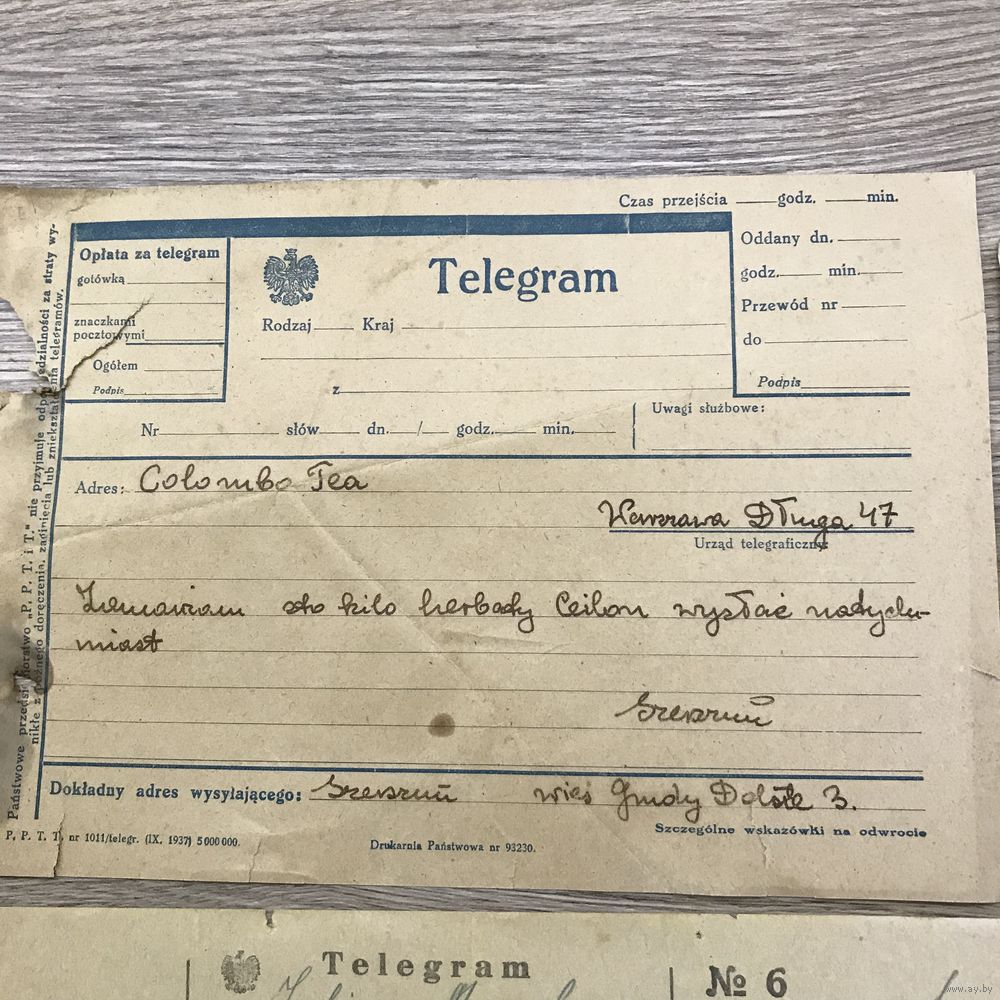 Czas przejścia godz. min.
Opłata za telegram
gotówką
znaczkami
pocztowymi
Ogółem
Podpis
Telegram
Rodzaj Kraj
z
Oddany dn.
godz. min.
Przewód nr
do
Podpis
Nr słów dn. / godz. min.
Uwagi służbowe:
Adres: Colombo Tea
Warszawa Długa 47
Urząd telegraficzny
Zamawiam sto kilo herbaty Ceilon wysłać natych-
miast
Dokładny adres wysyłającego: wieś Dolste 3.
Szczególne wskazówki na odwrocie
P. P. T. T. nr 1011/telegr. (IX. 1937) 5 000 000.
Drukarnia Państwowa nr 93230.
Państwowe przedsiębiorstwo „P. P. T. i T.” nie przyjmuje odpowiedzialności za straty wy-
nikłe z późnego doręczenia, zaginięcia lub zniekształcenia telegramów.
Telegram
№ 6
www.ay.by